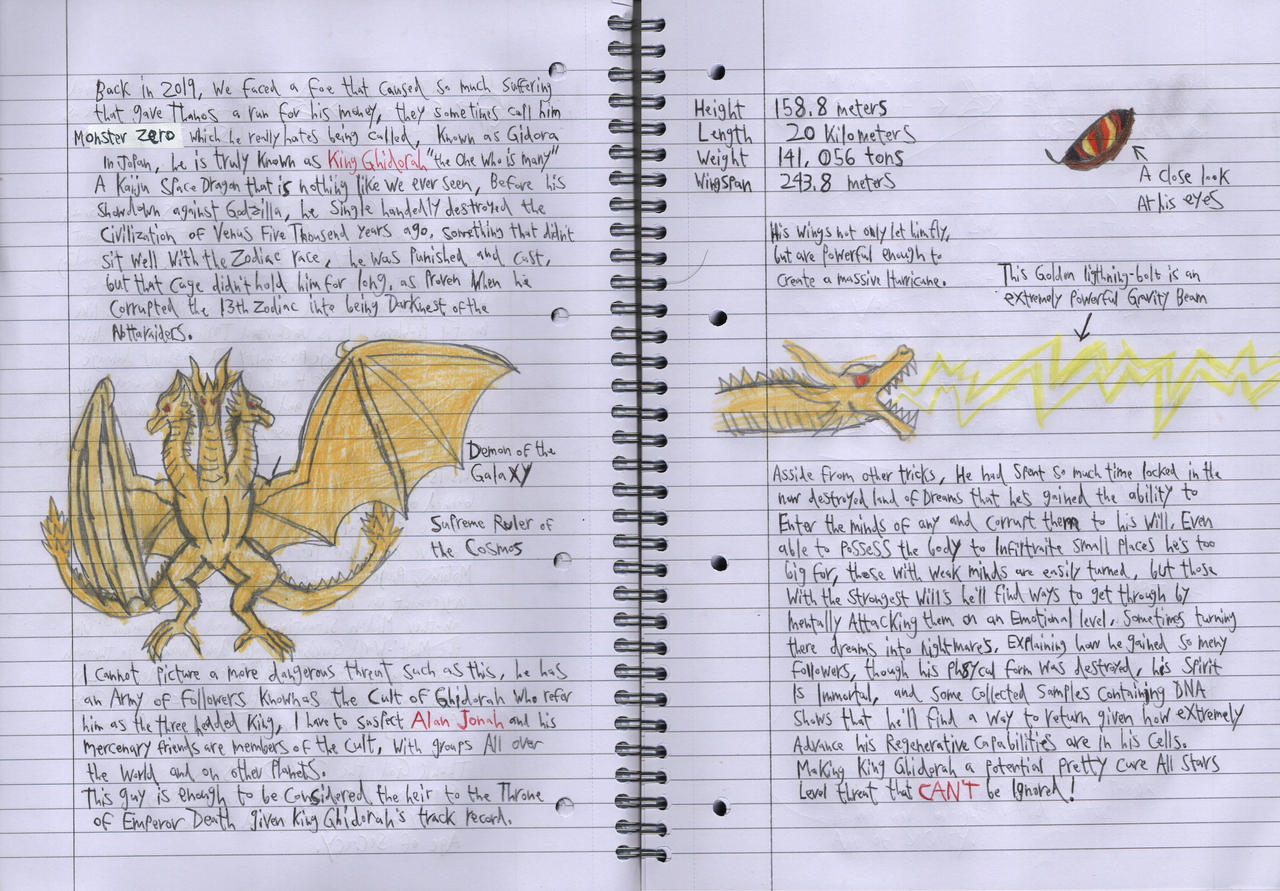 Back in 2019, we faced a foe that caused so much suffering
that gave Thanos a run for his money, they sometimes call him
Monster Zero which he really hates being called, Known as Gidora
in Japan, he is truly known as King Ghidorah "the One who is many"
A Kaiju Space Dragon that is nothing like we ever seen, Before his
showdown against Godzilla, he Single handedly destroyed the
Civilization of Venus Five Thousand years ago, something that didn't
sit well with the Zodiac race, he was Punished and Cast,
but that Cage didn't hold him for long, as Proven When he
Corrupted the 13th Zodiac into being Darknest of the
Nottaraiders.
Demon of the
Galaxy
Supreme Ruler of
the Cosmos
I cannot picture a more dangerous threat such as this, he has
an Army of Followers Known as the Cult of Ghidorah Who refer
him as the three headed King, I have to Suspect Alan Jonah and his
mercenary friends are members of the Cult, With groups All over
the World and on other Planets.
This guy is enough to be Considered the heir to the Throne
of Emperor Death given King Ghidorah's track record.
Height 158.8 meters
Length 20 Kilometers
Weight 141,056 tons
Wingspan 243.8 meters
A close look
At his eyes
His wings not only let him fly,
but are powerful enough to
Create a massive Hurricane.
This Golden ligthning-bolt is an
extremely Powerful Gravity Beam
Asside from other tricks, He had Spent so much time locked in the
now destroyed land of Dreams that he's gained the ability to
Enter the minds of any and Corrupt them to his Will, Even
able to Possess the body to Infiltraite Small Places he's too
big for, those with weak minds are easily turned, but those
With the Strongest Will's he'll find ways to get through by
mentally Attacking them on an Emotional level, Sometimes turning
there dreams into Nightmares, Explaining how he gained so meny
Followers, though his Phsycul form was destroyed, his Spirit
Is Immortal, and Some Collected Samples Containing DNA
Shows that he'll find a Way to return given how extremely
Advance his Regenerative Capabilities are in his Cells.
Making King Ghidorah a Potential Pretty Cure All Stars
Level threat that CAN'T be Ignored!